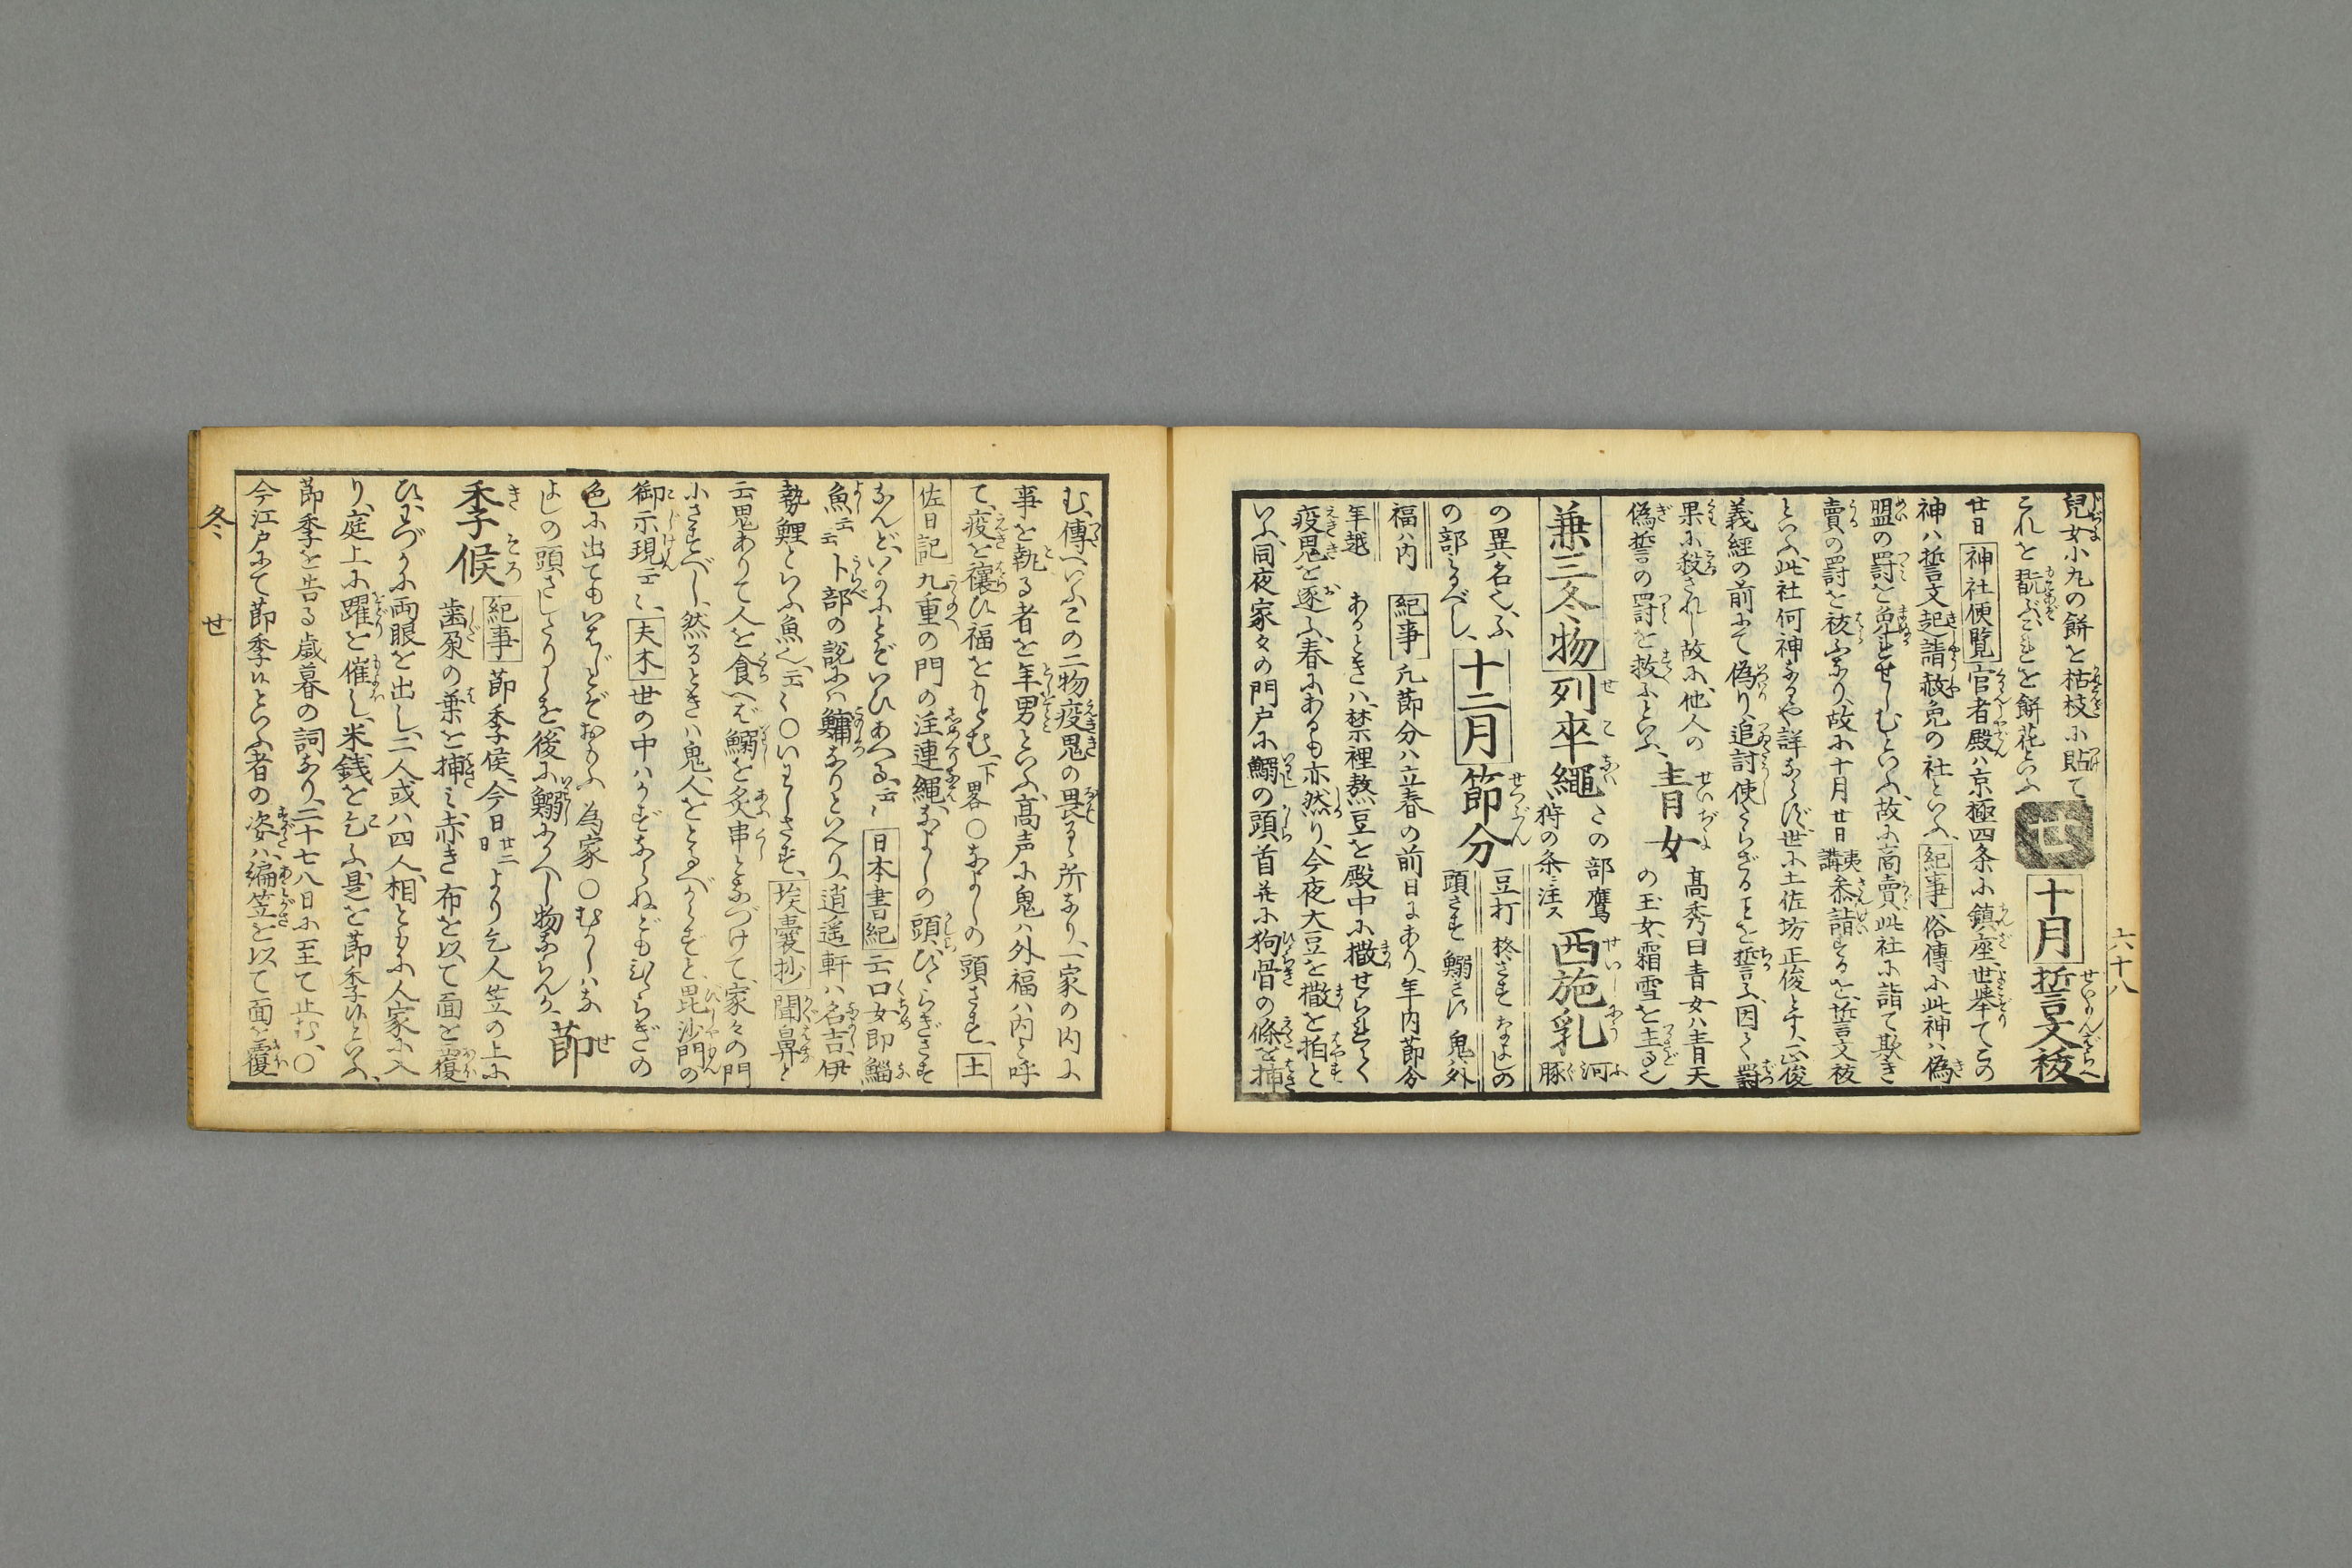 六十八
兒女小丸の餅を枯枝に貼て
これを翫ぶこれを餅花といふ
せ
十月
誓文祓
廿日
神社便覧
官者殿ハ京極四条に鎮座世挙てこの
神ハ誓文起請赦免の社といふ
紀事
俗傳に此神ハ偽
盟の罰を免せしむといふ故に商賣此社に詣て欺き
賣の罰を祓ふ故に十月廿日夷講参詣するを誓文祓
といふ此社何神なるや詳ならず世に土佐坊正俊とす正俊
義經の前にて偽り追討使たらざることを誓ふ因て罸
果に殺されし故に他人の
偽誓の罰を救ふといふ
青女
高秀曰青女ハ青天
の玉女霜雪を主る也
兼三冬物
列卒繩
この部鷹
狩の条ニ注ス
西施乳
河豚
の異名也ふ
の部にみるべし
十二月
節分
豆打 柊さす なよしの
頭さす 鰯さす 鬼ハ外
福ハ内
年越
紀事
凡節分ハ立春の前日にあり年内節分
あるときハ禁裡熬豆を殿中に撒せられて
疫鬼を逐ふ春にあるも亦然り今夜大豆を撒を拍と
いふ同夜家々の門戸に鰯の頭首并に狗骨の條を挿
む傳へいふこの二物疫鬼の畏るゝ所なり一家の内に
事を執る者を年男といふ高声に鬼ハ外福ハ内と呼
て疫を禳ひ福をもとむ下畧○なよしの頭さす
土
佐日記
九重の門の注連繩なよしの頭ひらぎさす
なんどいかにとぞいひあへる云々
日本書紀
云口女即鯔
魚云云卜部の説にハ鱅なりといへり逍遥軒ハ名吉伊
勢鯉といふ魚也云々○いわしさす
埃囊抄
聞鼻と
云鬼ありて人を食へバ鰯を炙串となづけて家々の門
にさすべし然るときハ鬼人をとるべからずと毘沙門の
御示現云々
夫木
世の中ハかずならねどもひらぎの
色に出てもいはじとぞおもふ 為家 ○むかしハな
よしの頭さしたりしを後に鰯にかへし物ならんか
節
季候
紀事
節季候今日廿二日より乞人笠の上に
歯朶の葉を挿ミ赤き布を以て面を覆
ひわづかに両眼を出し二人或ハ四人相ともに人家に入
り庭上に躍を催し米銭を乞ふ是を節季候といふ
節季を告る歳暮の詞あり二十七八日に至て止む○
今江戸にて節季候といふ者の姿ハ編笠を以て面を覆
冬 せ